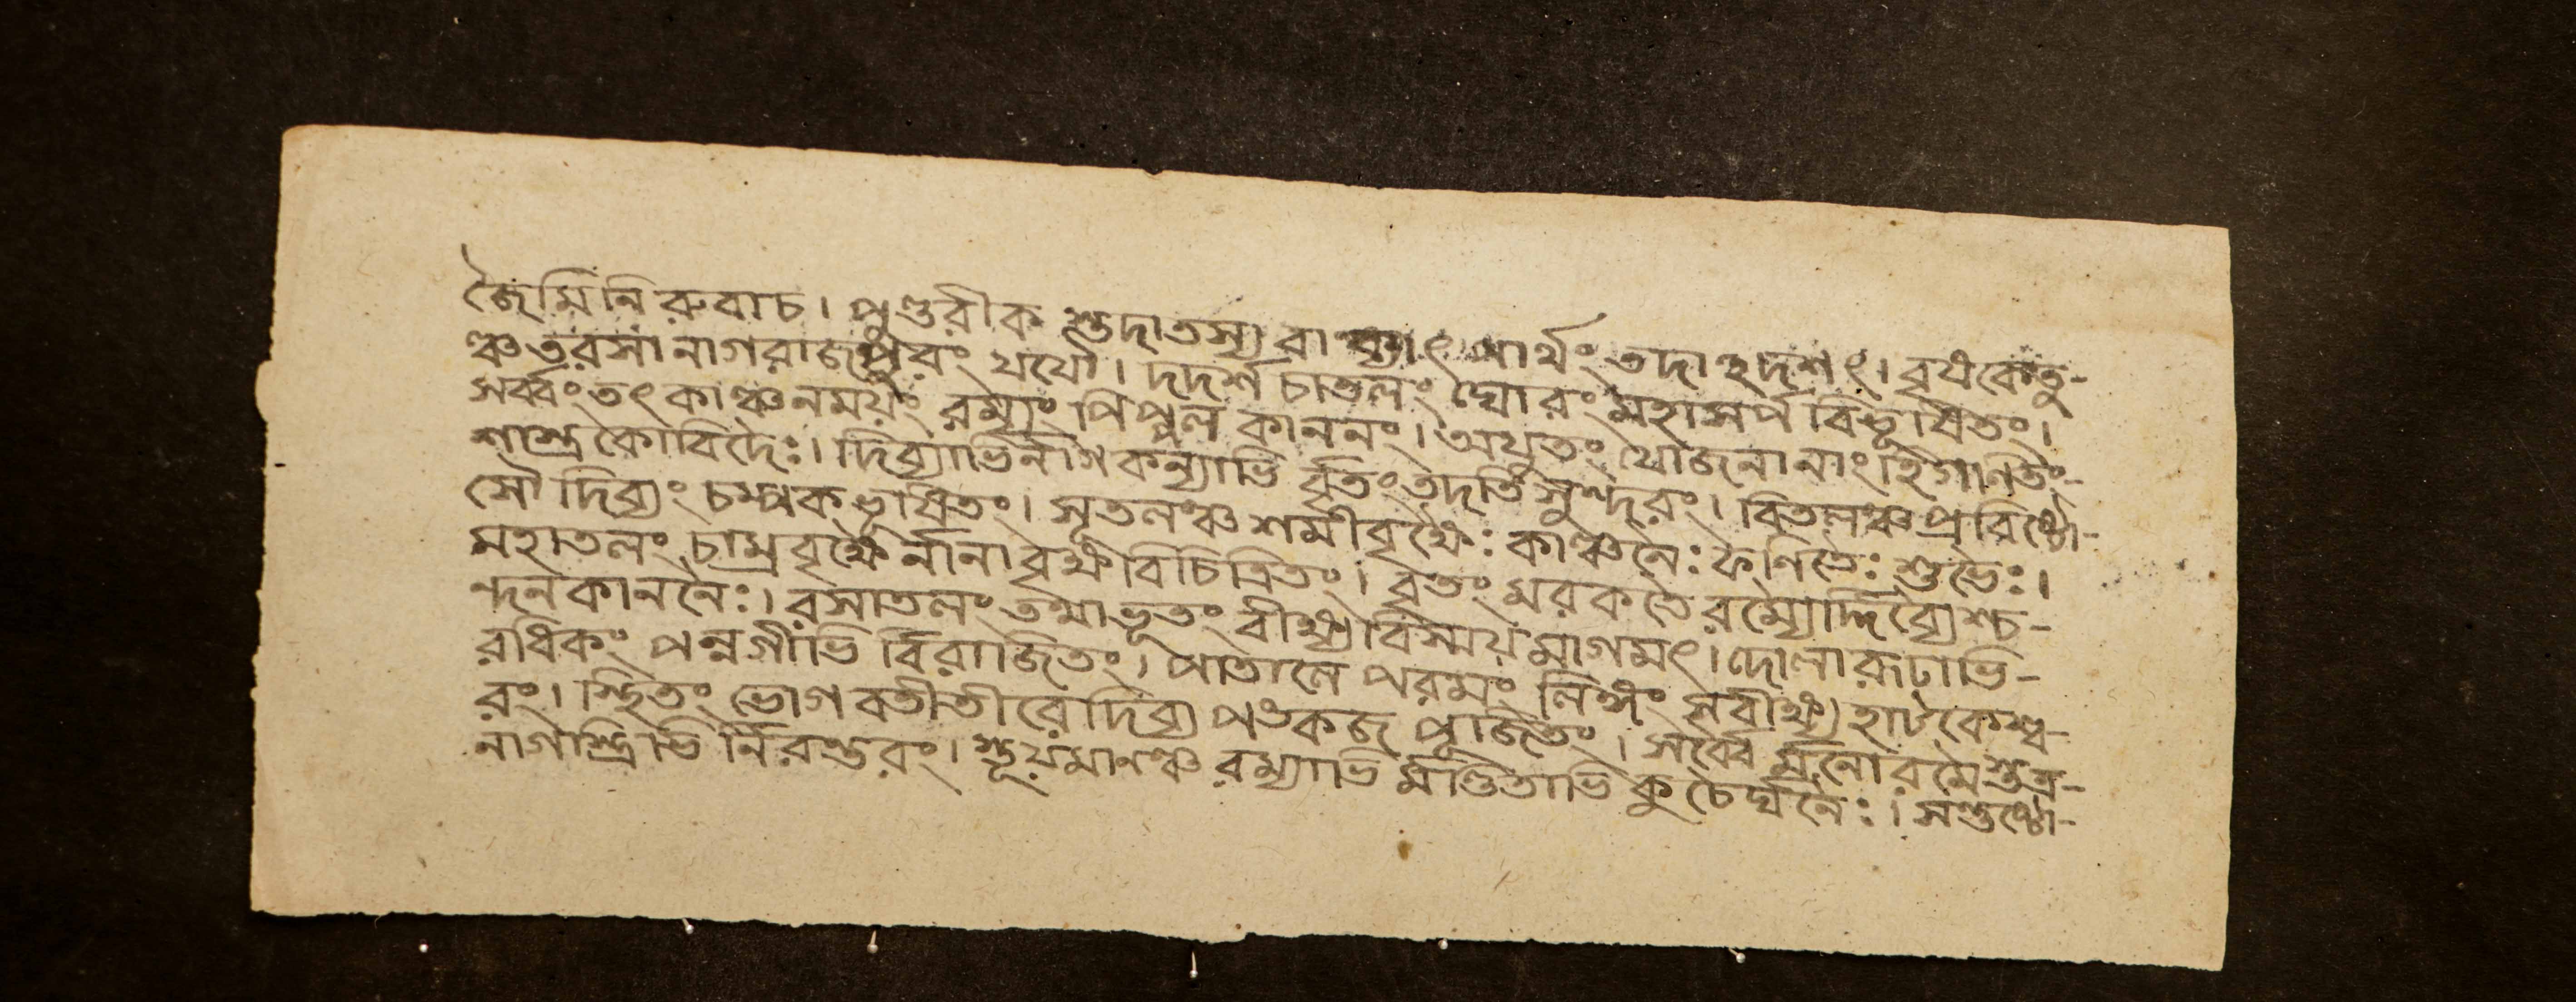 জৈমিনিরুবাচ। পুণ্ডরীকস্তুদাতস্য বাক্যাৎ পার্থং তদাহদশৎ। বৃষকেতু-
ঞ্চ তরসা নাগরাজপুরং যযৌ। দদর্শ চাতলং ঘোরং মহাসর্প বিভূষিতং।
সর্ব্বং তৎ কাঞ্চনময়ং রম্যং পিপ্পল কাননং। অযুতং যোজনানাং হি গণিতং
শাস্ত্রকোবিদৈঃ। দিব্যাভির্নাগকন্যাভি র্বৃতং তদতি সুন্দরং। বিতলঞ্চ প্রবিষ্টো-
সৌ দিব্যং চম্পক ভূষিতং। সুতলঞ্চ শমীবৃক্ষৈঃ কাঞ্চনৈঃ ফণিতৈঃ শুভৈঃ।
মহাতলং চাম্রবৃক্ষৈ র্নানাবৃক্ষ বিচিত্রিতং। বৃতং মরকতৈ রম্যৈর্দ্দিব্যৈশ্চ-
ন্দনকাননৈঃ। রসাতলং তথাভূতং বীক্ষ্য বিস্ময়মাগমৎ। দোলারূঢাভি-
রধিকং পন্নগীভি র্বিরাজিতং। পাতালে পরমং লিঙ্গং সবীক্ষ্য হাটকেশ্ব-
রং। স্থিতং ভোগবতীতীরে দিব্য পঙকজ পূজিতং। সর্ব্বৈ র্মনোরমৈস্তত্র-
নাগস্ত্রিভি র্নিরন্তরং। স্তূয়মানঞ্চ রম্যাভি র্মণ্ডিতাভি কুচৈর্ঘনৈঃ। সন্তুষ্টো-